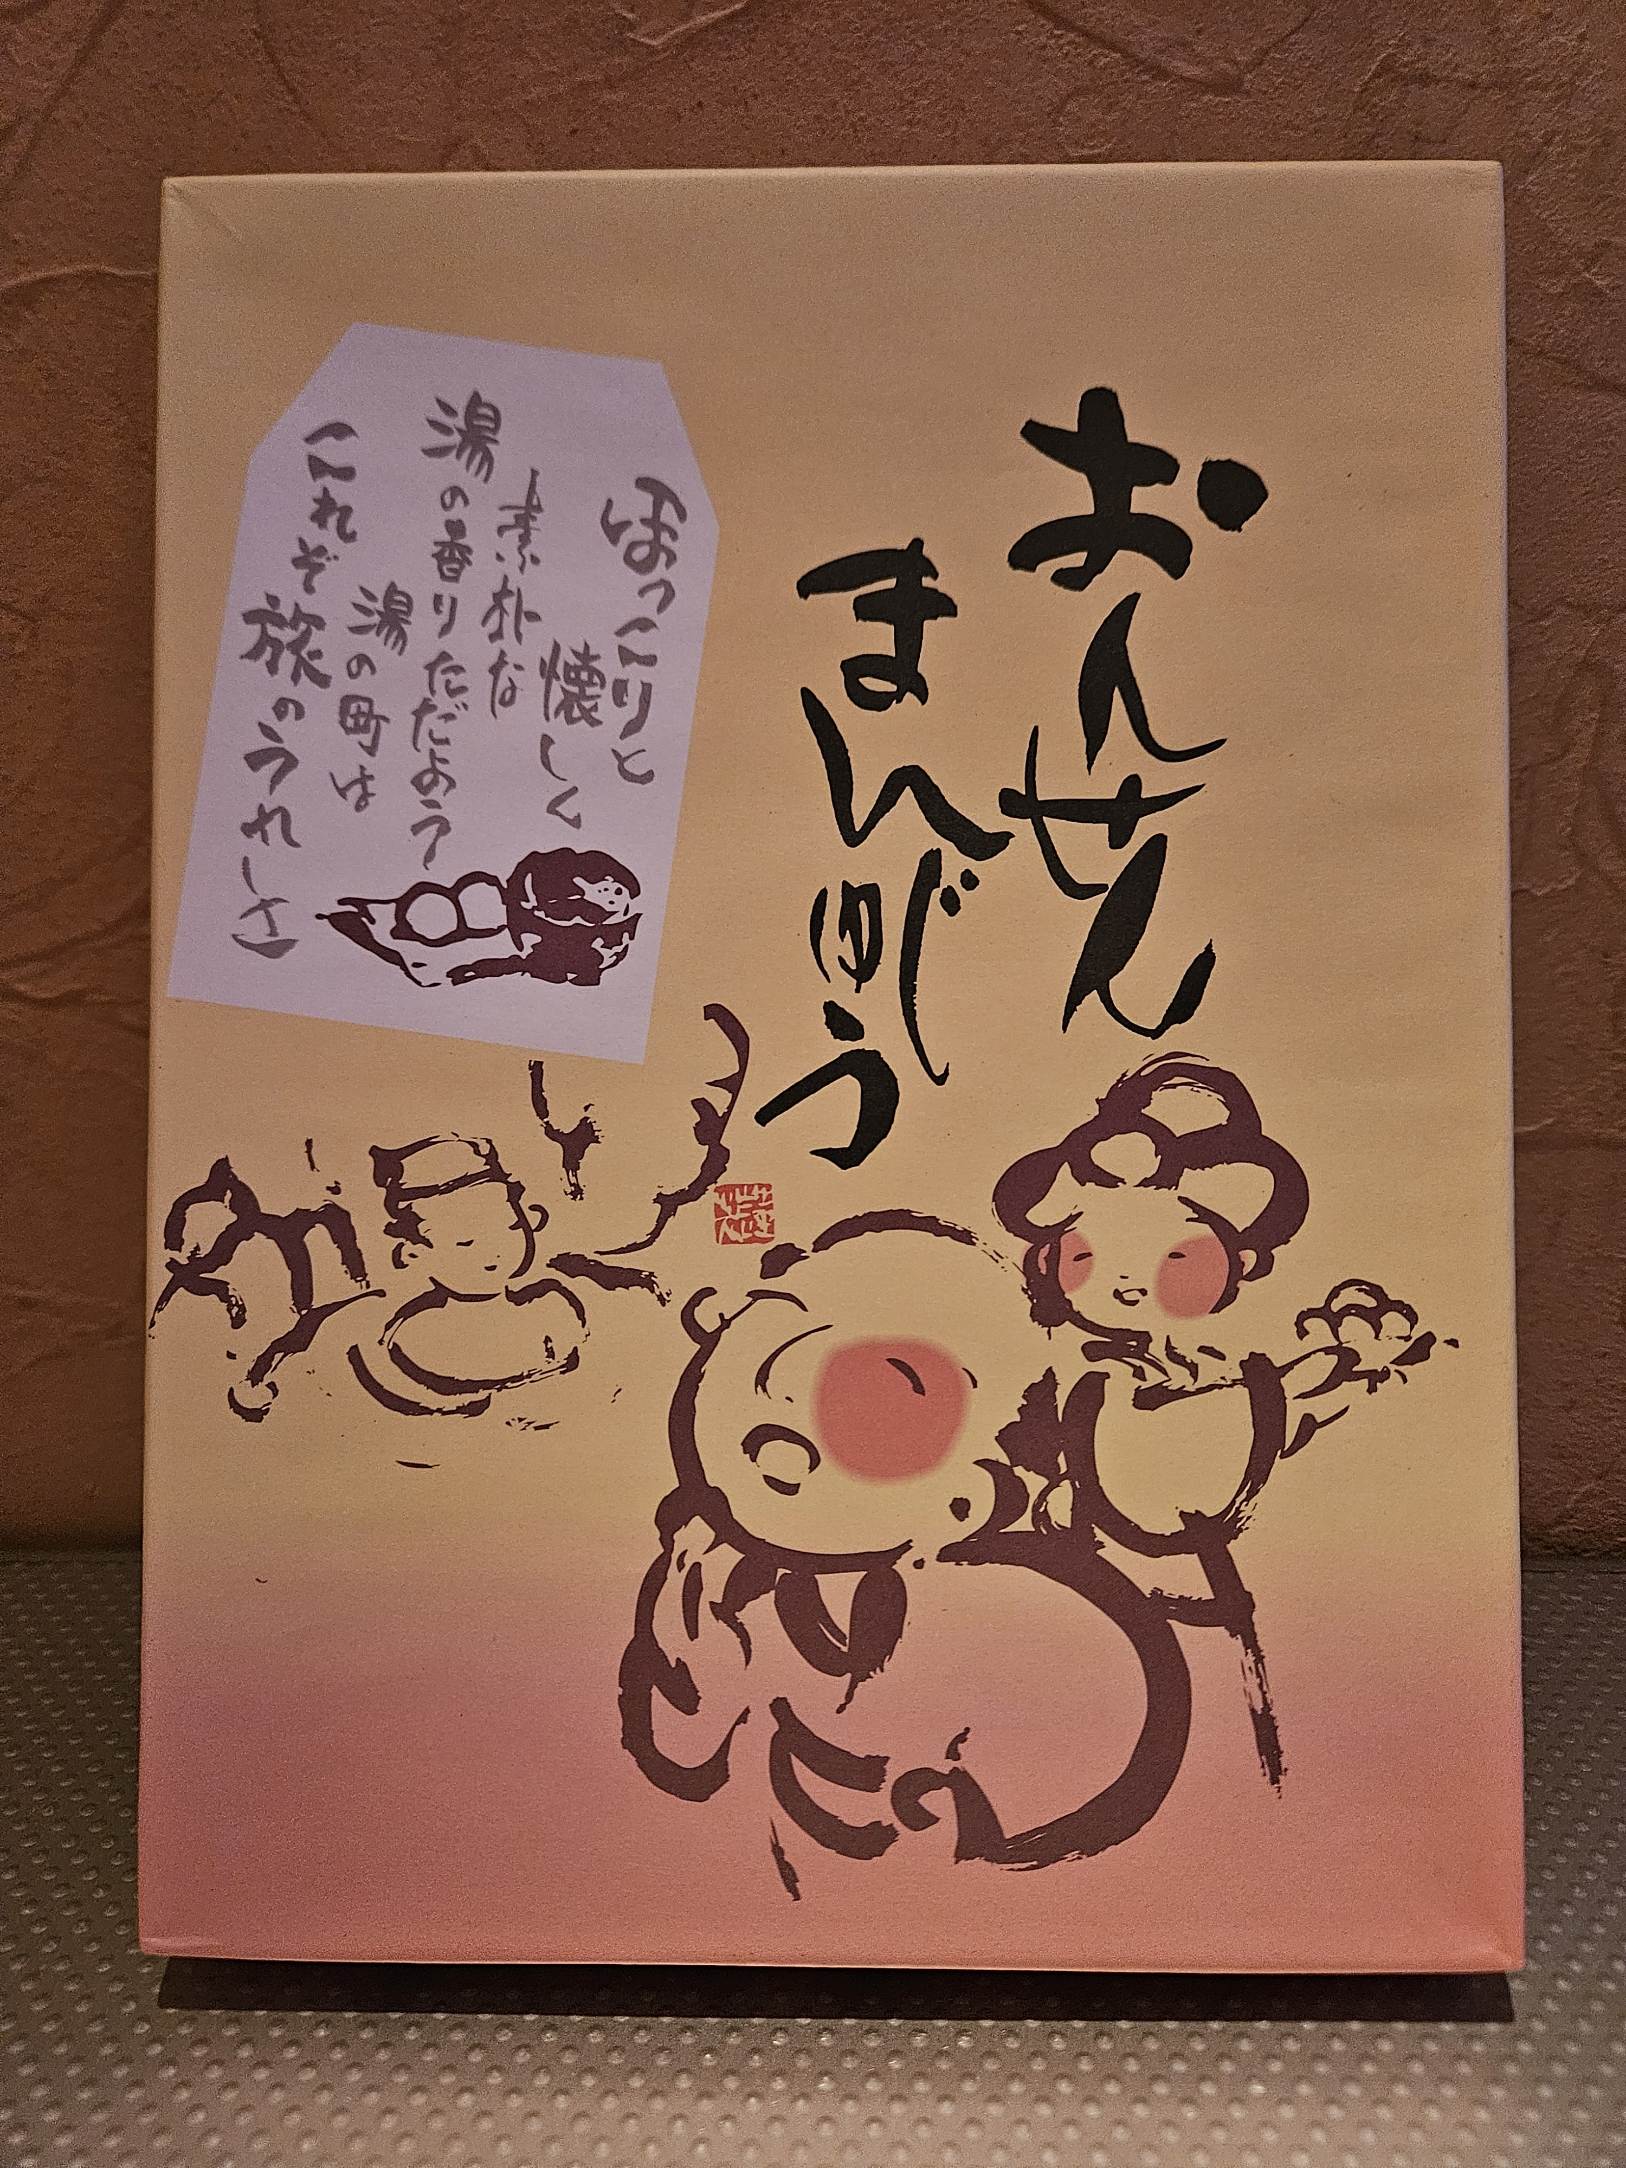 おんせん
まんじゅう
ほっこりと
懐しく
素朴な
湯の香りただよう
湯の町は
これぞ旅のうれしさ